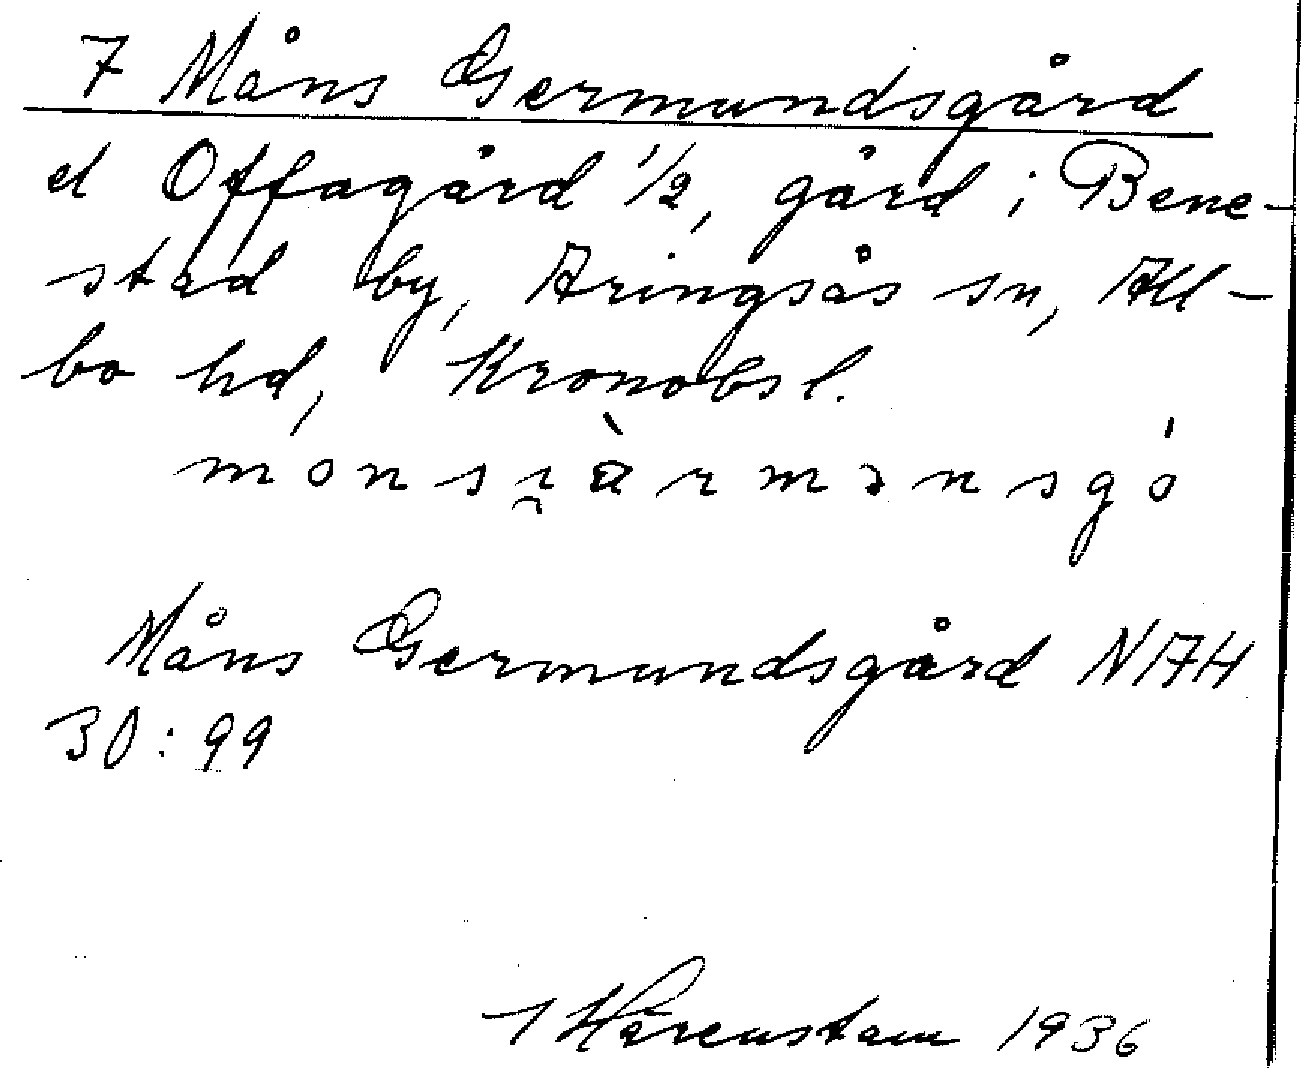 7 Måns Germundsgård
el Offagård 1/2, gård i Bene-
stad by, Aringsås sn, All-
bo hd, Kronobs l.
Måns Germundsgård NAH
30:99
Hårenstam 1936